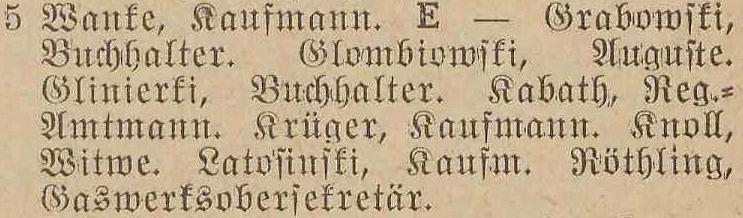 5 Wanke, Kaufmann. E — Grabowski,
Buchhalter. Glombiowski, Auguste.
Glinierki, Buchhalter. Kabath, Reg.-
Amtmann. Krüger, Kaufmann. Knoll,
Witwe. Latosinski, Kaufm. Röthling,
Gaswerksobersekretär.